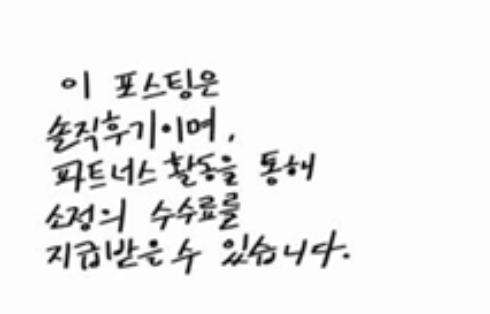 이 포스팅은
솔직후기이며,
파트너스 활동을 통해
소정의 수수료를
지급받을 수 있습니다.